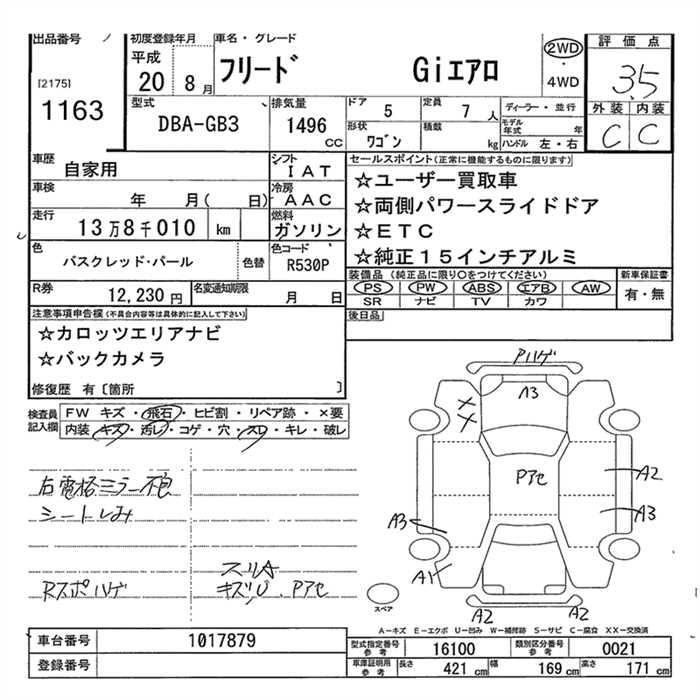 出品番号 初度登録年月 車名・グレード 評価点
[2175] 平成 20 8月 フリード Giエアロ 2WD ・ 4WD 3.5
1163
型式 排気量 ドア 5 定員 7人 ディーラー・並行 外装 内装
DBA-GB3 1496cc 形状 ワゴン 積載 kg モデル年式 年 ハンドル 左・右 C C
車歴 自家用 シフト IAT セールスポイント(正常に機能するものに限ります)
車検 年 月( 日) 冷房 AAC ☆ユーザー買取車
走行 13万8千010 km 燃料 ガソリン ☆両側パワースライドドア
☆ETC
色 バスクレッド・パール 色替 色コード R530P ☆純正15インチアルミ
装備品(純正品に限り〇をつけてください) 新車保証書
R券 12,230円 名変通知期限 月 日 PS PW ABS エアB AW 有・無
SR ナビ TV カワ
注意事項申告欄(不具合内容等は具体的に記入して下さい) 後日品
☆カロッツエリアナビ
☆バックカメラ
修復歴 有〔箇所 〕
検査員記入欄 FW キズ・飛石・ヒビ割・リペア跡・×要
内装 キズ・汚レ・コゲ・穴・スレ・キレ・破レ
Pハゲ
A3
× ×
Pアセ
A2
A3
A3
A1
A2 A2
右電格ミラー不良
シートしみ
スリA
Rスポハゲ キズ,U. Pアセ
スペア
A-キズ E-エクボ U-凹み W-補修跡 S-サビ C-腐食 XX-交換済
車台番号 1017879 型式指定番号 参考 16100 類別区分番号 参考 0021
登録番号 車庫証明用 参考 長さ 421cm 幅 169cm 高さ 171cm